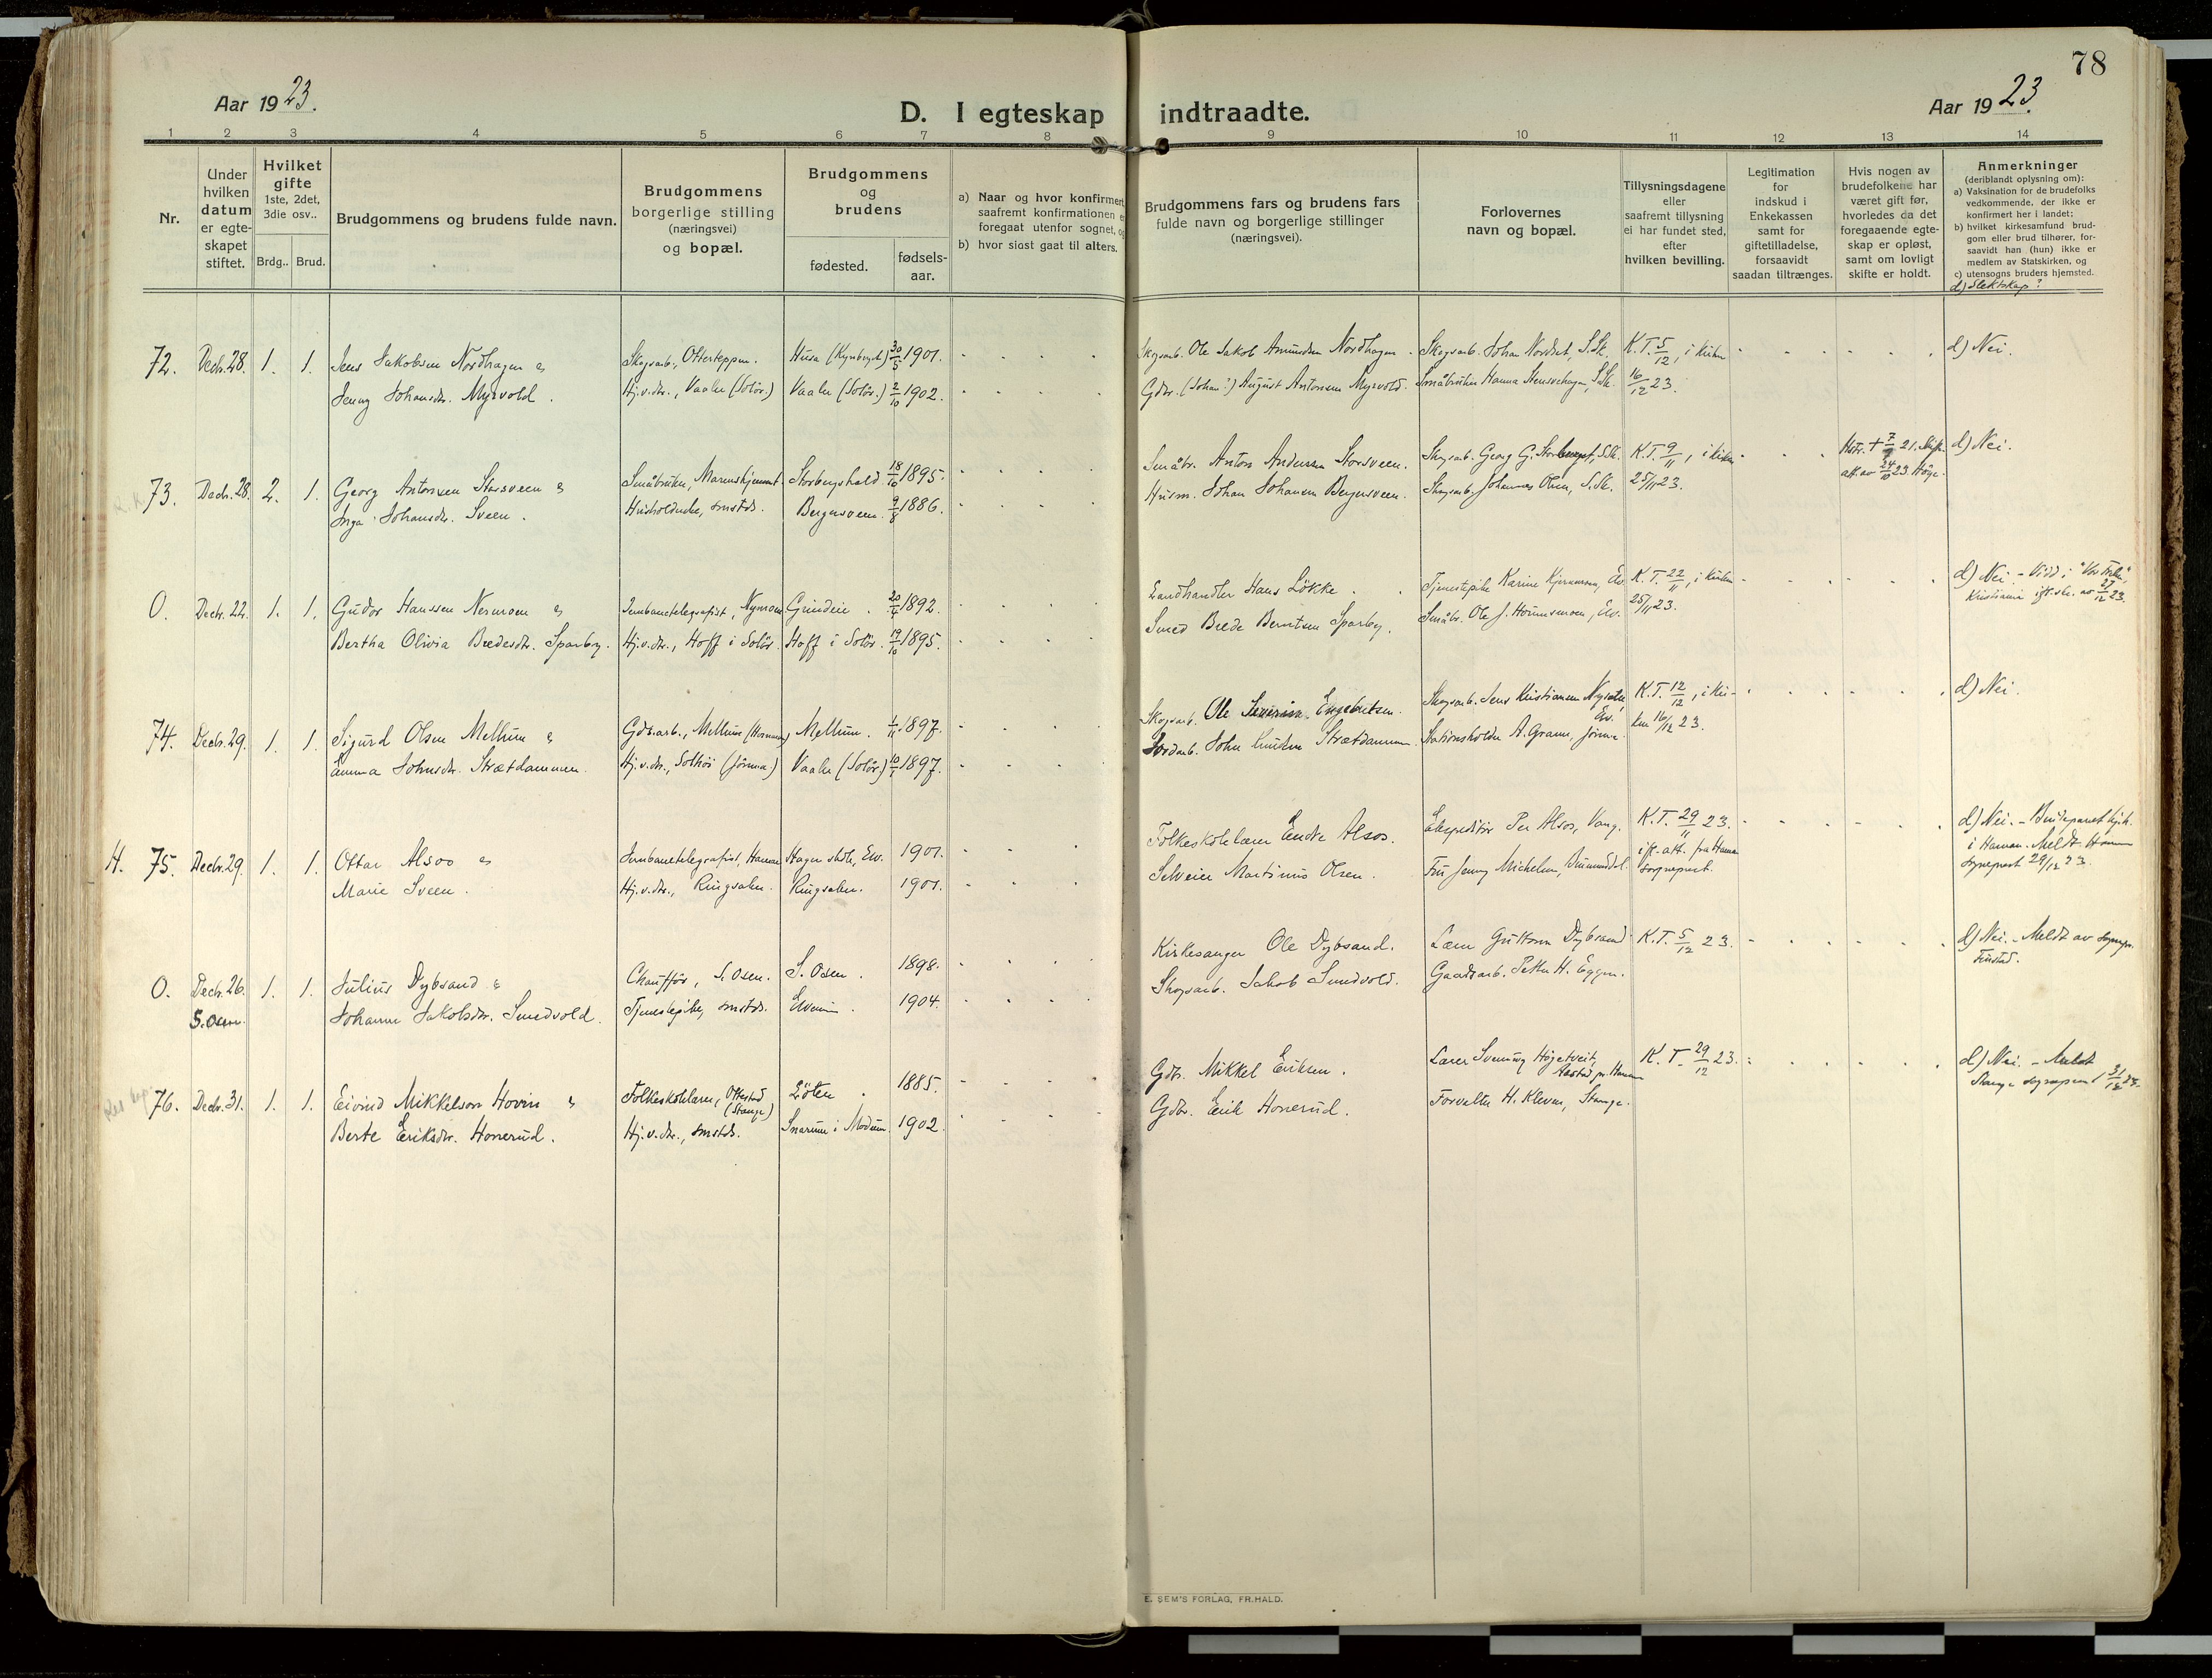 78
Aar 1923.
D. I egteskap indtraadte.
Aar 1923.
1 2 3 4 5 6 7 8 9 10 11 12 13 14
Nr.
Under hvilken datum er egte-skapet stiftet.
Hvilket gifte 1ste, 2det, 3die osv..
Brdg.. Brud.
Brudgommens og brudens fulde navn.
Brudgommens borgerlige stilling (næringsvei) og bopæl.
Brudgommens og brudens
fødested.
fødsels-aar.
a) Naar og hvor konfirmert, saafremt konfirmationen er foregaat utenfor sognet, og
b) hvor sisst gaat til alters.
Brudgommens fars og brudens fars fulde navn og borgerlige stillinger (næringsvei).
Forlovernes navn og bopæl.
Tillysningsdagene eller saafremt tillysning ei har fundet sted, efter hvilken bevilling.
Legitimation for indskud i Enkekassen samt for giftetilladelse, forsaavidt saadan tiltrænges.
Hvis nogen av brudefolkene har været gift før, hvorledes da det foregaaende egte-skap er opløst, samt om lovligt skifte er holdt.
Anmerkninger (deriblandt oplysning om):
a) Vaksination for de brudefolks vedkommende, der ikke er konfirmert her i landet;
b) hvilket kirkesamfund brud-gom eller brud tilhører, for-saavidt han (hun) ikke er medlem av Statskirken, og
c) utensogns bruders hjemsted.
d) Slektskap?
72. Decbr. 28. 1. 1. Jens Jakobsen Nordhagen & Skogsarb., Otterteppen. Husa (Kynberget) 30/5 1901. Skogsarb. Ole Jakob Amundsen Nordhagen. Skogsarb. Johan Nordset, S.Sk. K.T. 5/12, i kirken d) Nei.
Jenny Johansdtr. Myrvold. Hj.v.dtr., Vaaler (Solør.) Vaaler (Solør.) 2/10 1902. Gdbr. (Johan?) August Antonsen Myrvold. Småbruker Hanna S.Sk. 16/12 23.
73. Decbr. 28. 2. 1. Georg Antonsen Storsveen & Småbruker, Storbergshold 18/10 1895. Småbr. Anton Andersen Storsveen. Skogsarb. Georg G. Storberget, S.Sk. K.T. 9/11, i kirken 21. d) Nei.
Inga Johansdtr. Sveen. Husholderske, smstds. Bergersveen. 9/8 1886. Husm. Johan Johansen Bergersveen. Skogsarb. Johannes Olsen, S.Sk. 25/11 23. att. av 24/10 23
O. Decbr. 22. 1. 1. Gudor Hanssen Nermoen & Jernbanetelegrafist, Nymoen Grindeie. 20/4 1892. Landhandler Hans Løkke. Tjenestepike Karine Elv. K.T. 22/11, i kirken d) Nei. - Viet i "Vor Frelser", Kristiania 27/12 23.
Bertha Olivia Bredesdtr. Sparby. Hj.v.dtr., Hoff i Solør. Hoff i Solør. 19/10 1895. Smed Brede Berntsen Sparby. Småbr. Ole J. Hornmoen, Elv. 25/11 23.
74. Decbr. 29. 1. 1. Sigurd Olsen Mellum & Gds.arb., Mellum Mellum. 1/11 1897. Skogsarb. Ole Severin Engebretsen. Skogsarb. Jens Kristiansen Elv. K.T. 12/12, i kir- d) Nei.
Emma Johnsdtr. Strætdammen. Hj.v.dtr., Solhøi (Jömna) Vaaler (Solør.) 10/1 1897. Jordarb. John Strætdammen. Stationsholder A. Gram, Jömna. ken 16/12 23.
H. 75. Decbr. 29. 1. 1. Ottar Alsos & Jernbanetelegrafist, Hamar Hagen skole, Elv. 1901. Folkeskolelærer Endre Alsos. Ekspeditør Per Alsos, Vang. K.T. 29/11 23. d) Nei. - Brudeparret
Marie Sveen. Hj.v.dtr., Ringsaker. Ringsaker. 1901. Selveier Martinus Olsen. Fru Jenny Michelsen, ifl. att. fra Hamar sogneprest. i Hamar. Meldt Hamar sogneprest 29/12 23.
O. Decbr. 26. 1. 1. Julius Dybsand & Chauffør, S. Osen. S. Osen. 1898. Kirkesanger Ole Dybsand. Lærer Guttorm Dybsand K.T. 5/12 23. d) Nei. - Meldt av sognepr.
S. Osen. Johanne Jakobsdtr. Smedvold. Tjenestepike, smstds. Elverum. 1904. Skogsarb. Jakob Smedvold. Gaardsarb. Petter H. Eggen.
76. Decbr. 31. 1. 1. Eivind Mikkelsen Hovin & Folkeskolelærer, Ottestad (Stange) Löten 1885. Gdbr. Mikkel Eriksen. Lærer Sveinung Høgetveit, K.T. 29/12 23. d) Nei. - Meldt Stange sogneprest 31/12 23.
Berte Eriksdtr. Honerud. Hj.v.dtr., smstds. Snarum i Modum. 1902. Gdbr. Erik Honerud. Forvalter H. Kleven, Stange.
E. SEM'S FORLAG, FR.HALD.